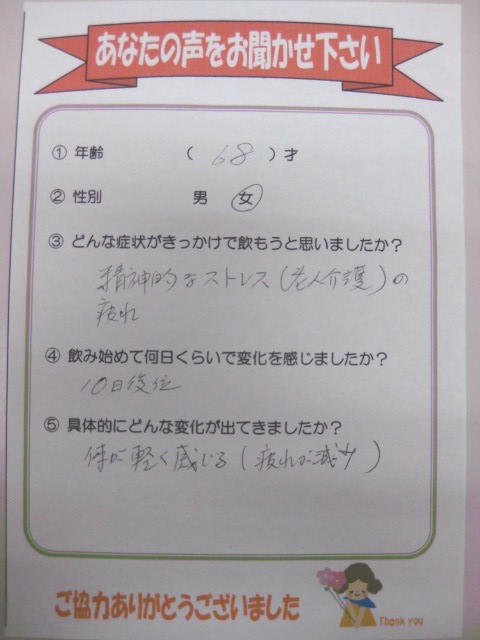 あなたの声をお聞かせ下さい
① 年齢 ( 68 ) 才
② 性別 男 女
③ どんな症状がきっかけで飲もうと思いましたか?
精神的なストレス(老人介護)の
疲れ
④ 飲み始めて何日くらいで変化を感じましたか?
10日後位
⑤ 具体的にどんな変化が出てきましたか?
体が軽く感じる(疲れが減少)
ご協力ありがとうございました
Thank you